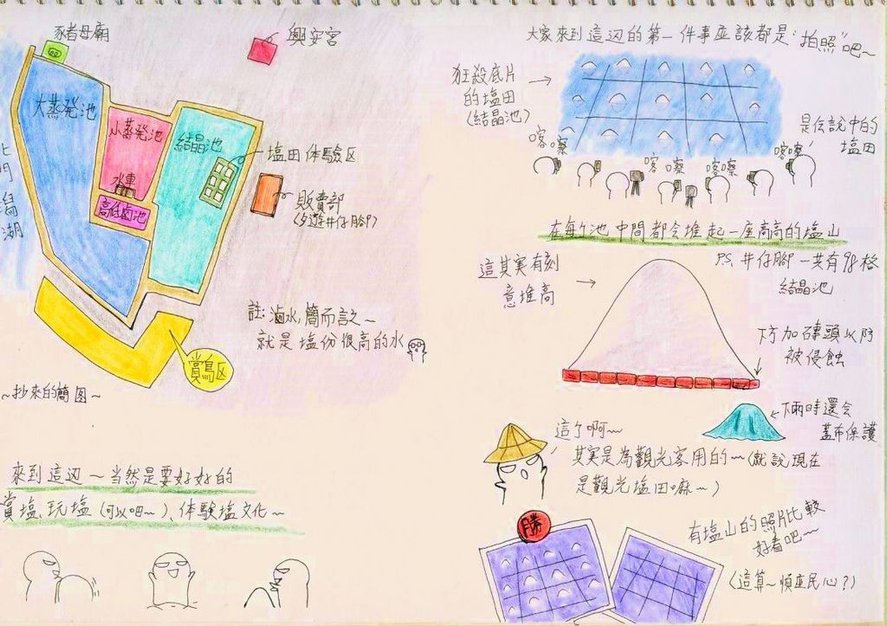 豕者母廟
興安宮
大蒸発池
小蒸発池
結晶池
塩田体驗区
水車
高低鹵池
販賣部
(夕遊井仔腳)
門
潟
湖
註:滷水,簡而言之~
就是塩份很高的水
賞鳥区
~抄來的簡图~
來到這辺~当然是要好好的
賞塩、玩塩(可以吧~)、体驗塩文化~
大家來到這辺的第一件事应該都是"拍照"吧~
狂殺底片
的塩田
(結晶池)
是伝說中的
塩田
喀嚓
喀嚓
喀嚓
喀嚓
在每个池中間都会堆起一座高高的塩山
這其実有刻
意堆高
PS.井仔腳一共有98格
結晶池
下方加磚頭以防
被侵蝕
下雨時還会
蓋布保護
這个啊~
其実是為觀光客用的~(就說現在
是觀光塩田嘛~)
勝
有塩山的照片比較
好看吧~
(這算~順應民心?)